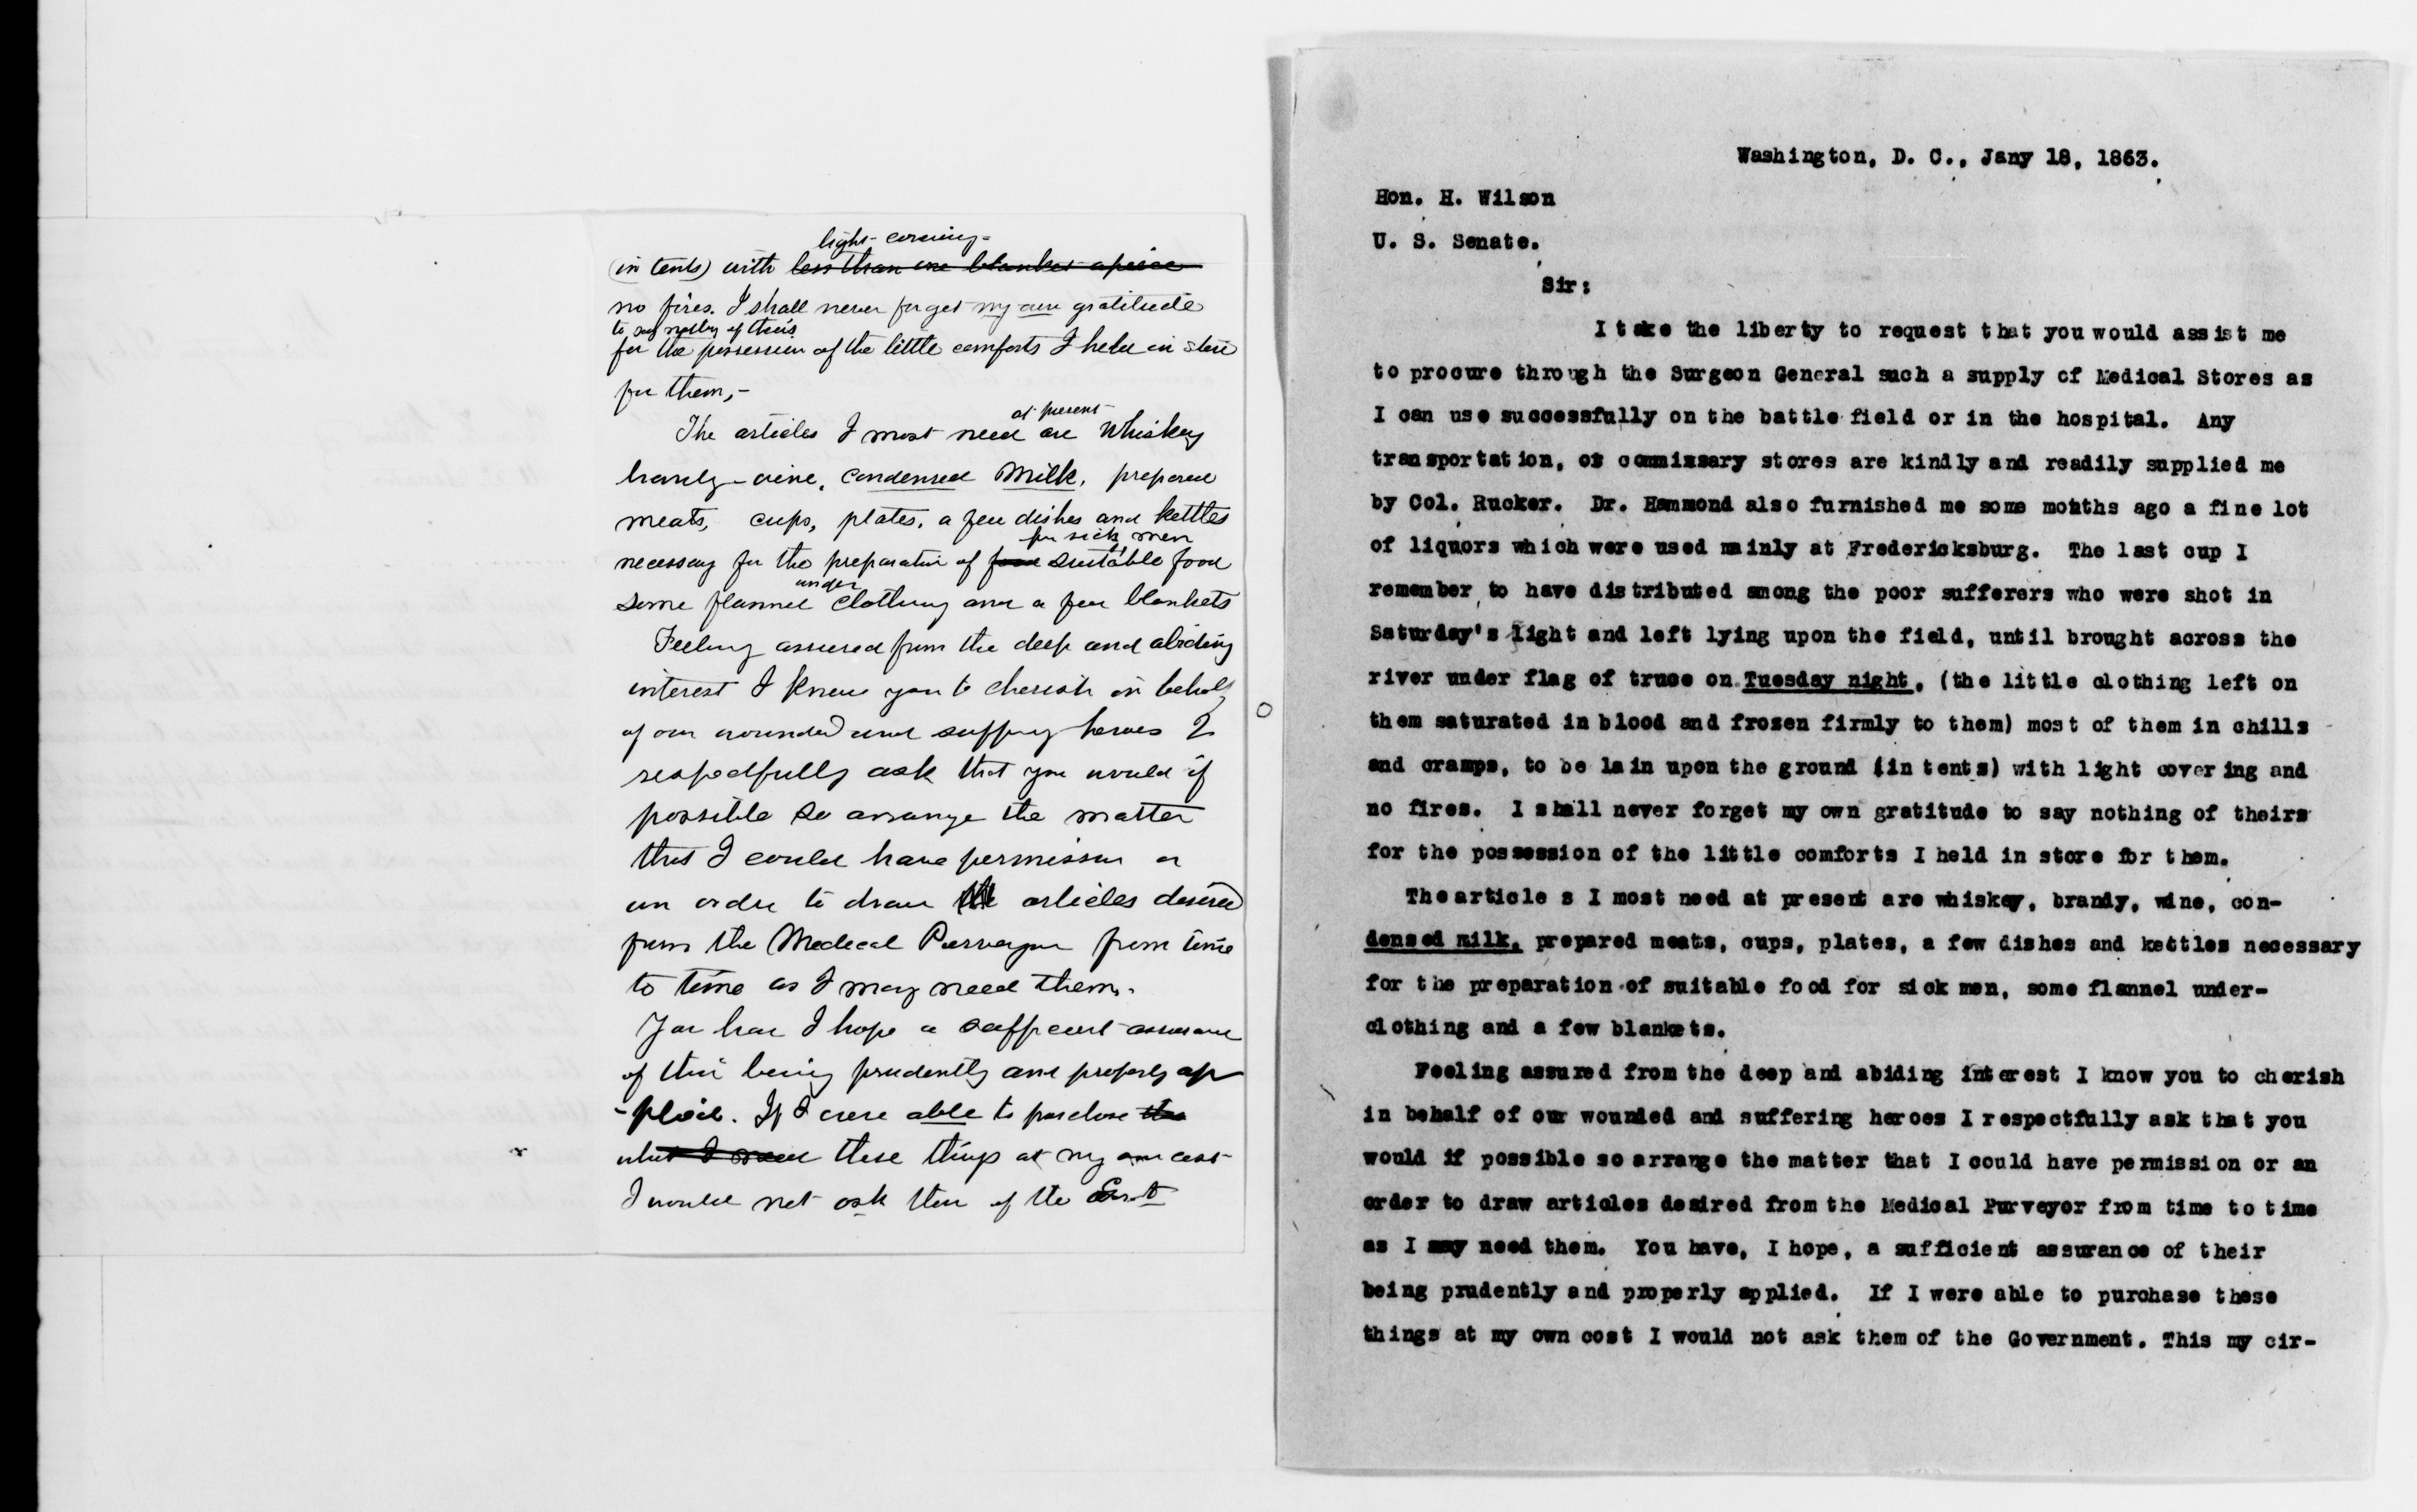 light-covering-
(in tents) with less than one blanket apiece
no fires. I shall never forget my own gratitude
to say nothing of theirs
for the possession of the little comforts I held in store
for them,-
at present
The articles I most need are Whiskey
brandy-wine, condensed Milk, prepared
meats, cups, plates, a few dishes and kettles
for sick men
necessary for the preparation of food suitable food
under
some flannel clothing and a few blankets
Feeling assured from the deep and abiding
interest I know you to cherish in behalf
of our wounded and suffering heroes I
respectfully ask that you would if
possible so arrange the matter
that I could have permission or
an order to draw the articles desired
from the Medical Purveyor from time
to time as I may need them.
You have I hope a sufficient assurance
of their being prudently and properly ap
-plied. If I were able to purchase the
what I need these things at my own cost
I would not ask them of the Govt
Washington, D. C., Jany 18, 1863.
Hon. H. Wilson
U. S. Senate.
Sir:
I take the liberty to request that you would assist me
to procure through the Surgeon General such a supply of Medical Stores as
I can use successfully on the battle field or in the hospital. Any
transportation, or commissary stores are kindly and readily supplied me
by Col. Rucker. Dr. Hammond also furnished me some months ago a fine lot
of liquors which were used mainly at Fredericksburg. The last cup I
remember to have distributed among the poor sufferers who were shot in
Saturday's fight and left lying upon the field, until brought across the
river under flag of truce on Tuesday night, (the little clothing left on
them saturated in blood and frosen firmly to them) most of them in chills
and cramps, to be lain upon the ground (in tents) with light covering and
no fires. I shall never forget my own gratitude to say nothing of theirs
for the possession of the little comforts I held in store for them.
The articles I most need at present are whiskey, brandy, wine, con-
densed milk, prepared meats, cups, plates, a few dishes and kettles necessary
for the preparation of suitable food for sick men, some flannel under-
clothing and a few blankets.
Feeling assured from the deep and abiding interest I know you to cherish
in behalf of our wounded and suffering heroes I respectfully ask that you
would if possible so arrange the matter that I could have permission or an
order to draw articles desired from the Medical Purveyor from time to time
as I may need them. You have, I hope, a sufficient assurance of their
being prudently and properly applied. If I were able to purchase these
things at my own cost I would not ask them of the Government. This my cir-